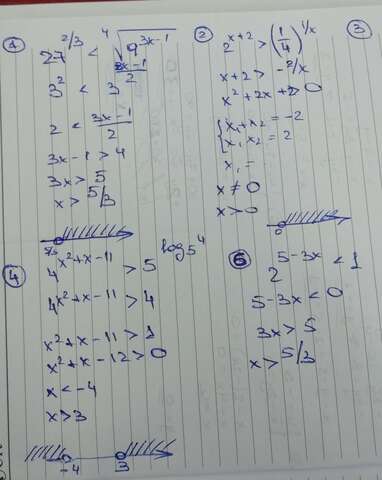 1
27^{2/3} < ⁴√(9^{3x-1})
3² < 3^{\frac{3x-1}{2}}
2 < \frac{3x-1}{2}
3x-1 > 4
3x > 5
x > 5/3
5/3
2
2^{x+2} > (\frac{1}{4})^{1/x}
x+2 > -2/x
x²+2x+2 > 0
{x₁+x₂ = -2
{x₁ x₂ = 2
x₁ =
x ≠ 0
x > 0
0
3
4
4^{x²+x-11} > 5^{log₅4}
4^{x²+x-11} > 4
x²+x-11 > 1
x²+x-12 > 0
x < -4
x > 3
-4 3
6
2^{5-3x} < 1
5-3x < 0
3x > 5
x > 5/3